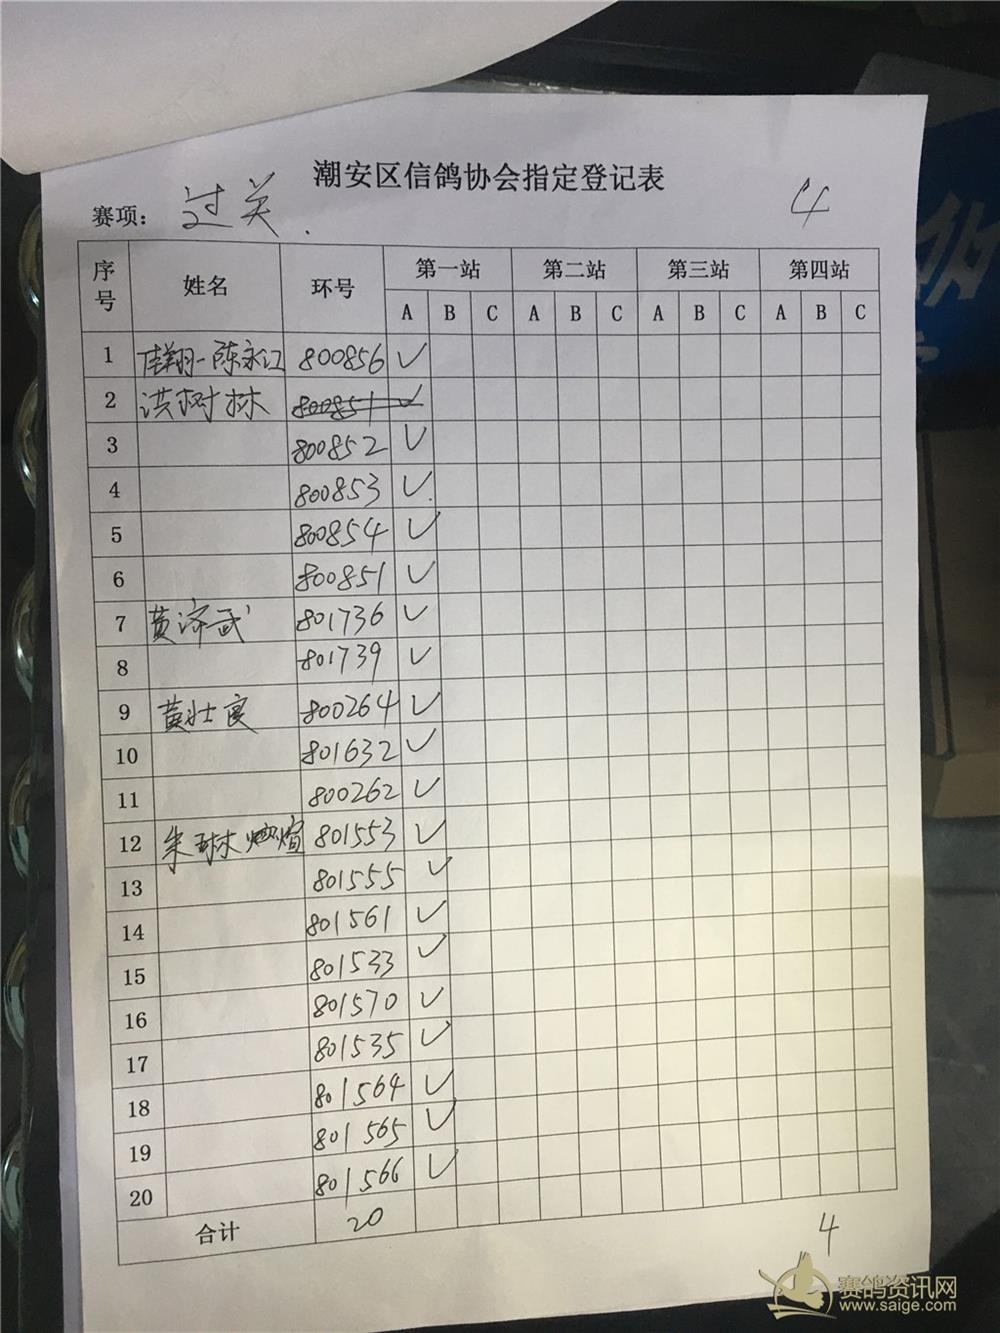 潮安区信鸽协会指定登记表
赛项： 过关. 4
序号 姓名 环号 第一站 第二站 第三站 第四站
A B C A B C A B C A B C
1 翔-陈永江 800856 ✓
2 洪树林 800851 ✓
3 800852 ✓
4 800853 ✓
5 800854 ✓
6 800851 ✓
7 黄济武 801736 ✓
8 801739 ✓
9 黄壮良 800264 ✓
10 801632 ✓
11 800262 ✓
12 朱琳 801553 ✓
13 801555 ✓
14 801561 ✓
15 801533 ✓
16 801570 ✓
17 801535 ✓
18 801564 ✓
19 801565 ✓
20 801566 ✓
合计 20
4
赛鸽资讯网
www.saige.com